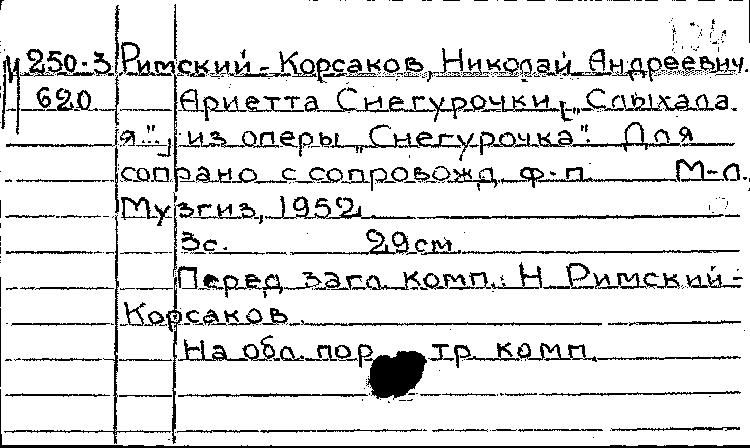 134
М 250-3 Римский-Корсаков, Николай Андреевич.
620 Ариетта Снегурочки [„Слыхала
я..."] из оперы „Снегурочка". Для
сопрано с сопровожд. ф-п. М-Л.,
Музгиз, 1952.
3с. 29см.
Перед загл. комп.: Н Римский-
Корсаков.
На обл. портр комп.